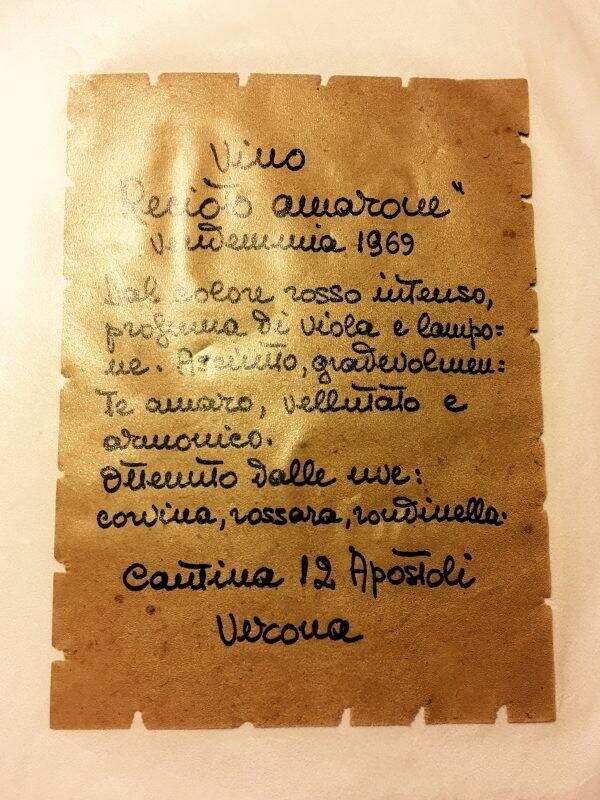 Vino
Recioto amarone"
Vendemmia 1969
Dal colore rosso intenso,
profuma di viola e lampo=
ne. Asciutto, gradevolmen:
te amaro, vellutato e
armonico.
Ottenuto dalle uve:
corvina, rossara, rondinella.
Cantina 12 Apostoli
Verona